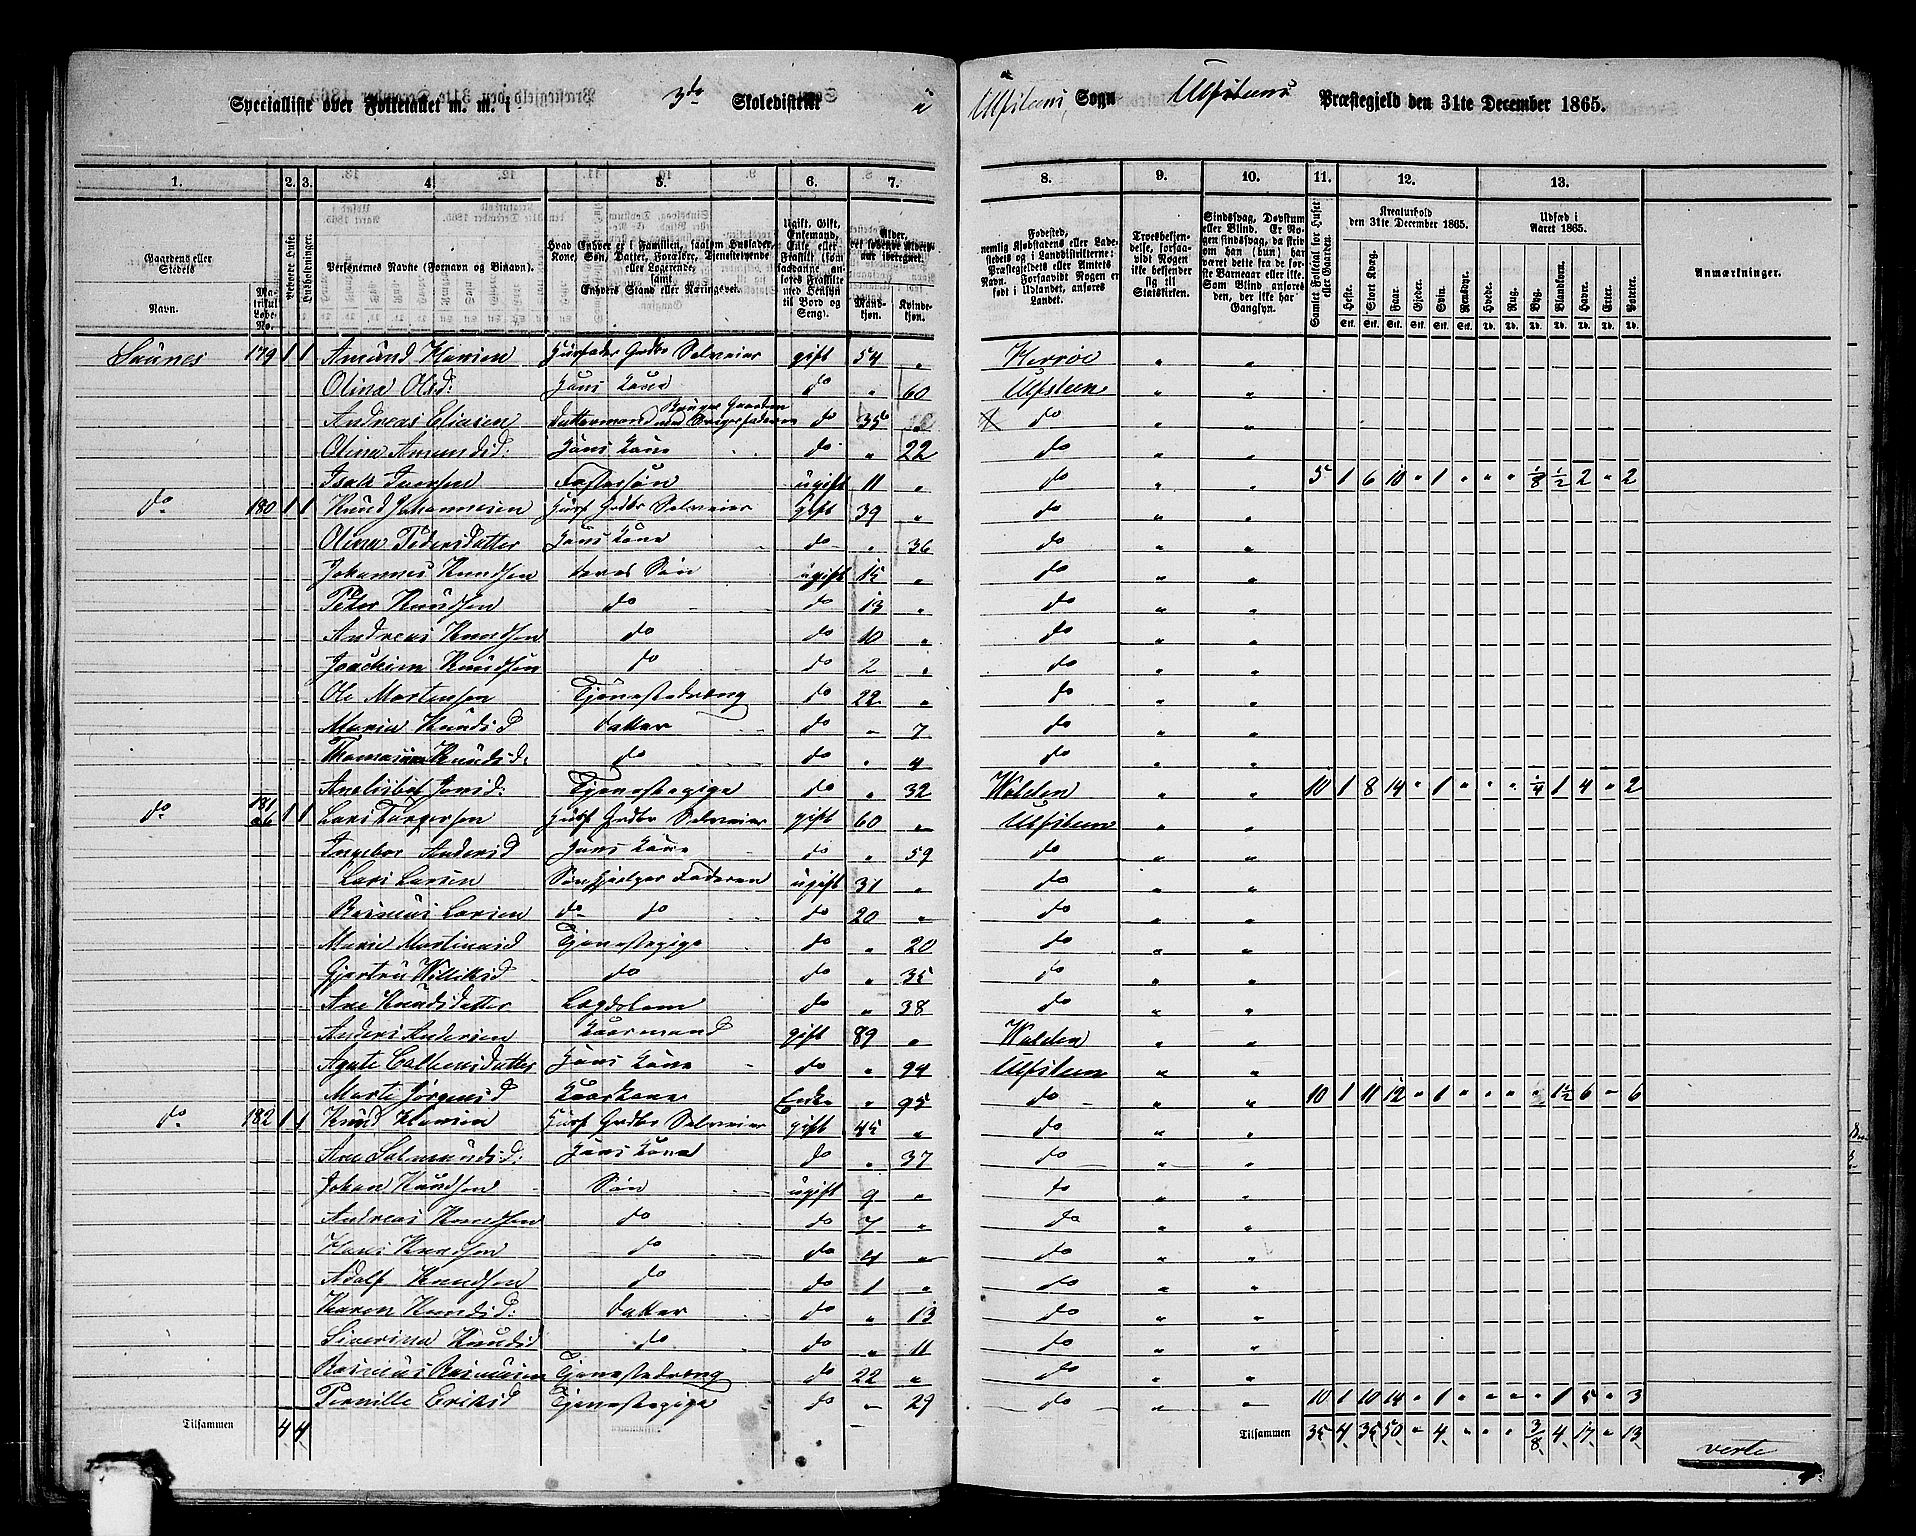 Specialliste over Folketallet m. m. i 3do Skoledistrikt i Ulfsteens Sogn Ulfsteens Præstegjeld den 31te December 1865.
1. 2. 3. 4. 5. 6. 7. 8. 9. 10. 11. 12. 13.
Gaardens eller Stedets Navn. Matrikul Løbe-No. Beboede Huse. Husholdninger. Personernes Navne (Fornavn og Tilnavn). Hvad Enhver er i Familien, saasom Husfader, Kone, Søn, Datter, Forældre, Tjenestetyende eller Logerende, samt Enhvers Stand eller Næringsvei. Ugift, Gift, Enkemand, Enke eller Fraskilt
Kreaturhold den 31te December 1865. Udsæd i Aaret 1865. Anmærkninger.
Heste. Stort Kvæg. Faar. Gjeder. Sviin. Rensdyr. Hvede. Rug. Byg. Blandkorn. Havre. Erter. Poteter.
Saunes 179 1 1 Amund Hansen Huusfader Grdbr Selveier gift 54 " Herröe " "
Olina Olsd: Hans Kone do " 60 Ulfsteen " "
Andreas Eliasen do 35 " do " "
Olina Amundsd: Hans Kone do " 22 do " "
Isak Iversen Fostersøn ugift 11 " do " " 5 1 6 10 " 1 " " " 1/8 1/2 2 " 2
do 180 1 1 Knud Johannesen Husf Grdbr Selveier Gift 39 " do " "
Olina Pedersdatter Hans Kone do " 36 do " "
Johannes Knudsen deres Søn ugift 15 " do " "
Peter Knudsen do do 13 " do " "
Andreas Knudsen do do 10 " do " "
Joachim Knudsen do do 2 " do " "
Ole Mortensen Tjenestedreng do 22 " do " "
Maria Knudsd datter do " 7 do " "
Knudsd: do do " 4 do " "
Anelisbet Jonsd: Tjenestepige do " 32 Volden " " 10 1 8 14 " 1 " " " 1/4 1 4 " 2
do 181 1 1 Lars Torgersen Husf Grdbr Selveier gift 60 " Ulfsteen " "
Ingebor Andersd Hans Kone do " 59 do " "
Lars Larsen Søn hjelper Faderen ugift 31 " do " "
Rasmus Larsen do do do 20 " do " "
Marie Martinusd Tjenestepige do " 20 do " "
Gjertru Williksd do do " 35 do " "
Ane Knudsdatter Lægdslem do " 38 do " "
Anders Andersen Kaarmand gift 89 " Volden " "
Agate Hans Kone do " 94 Ulfsteen " "
Marte Jørgensd Kaarkone Enke " 95 do " " 10 1 11 12 " 1 " " " " 1 1/2 6 " 6
do 182 1 1 Knud Hansen Husf Grdbr Selveier gift 45 " do " "
Ane Salmundsd: Hans Kone do " 37 do " "
Johan Knudsen Søn ugift 9 " do " "
Andreas Knudsen do do 7 " do " "
Hans Knudsen do do 4 " do " "
Adolf Knudsen do do 1 " do " "
Karen Knudsd: datter do " 13 do " "
Siverina Knudsd do do " 11 do " "
Rasmus Rasmusen Tjenestedreng do 22 " do " "
Pernille Eriksd Tjenestepige do " 29 do " " 10 1 10 14 " 1 " " " " 1 5 " 3
Tilsammen 4 4 Tilsammen 35 4 35 50 " 4 " " " 3/8 4 17 " 13
verte